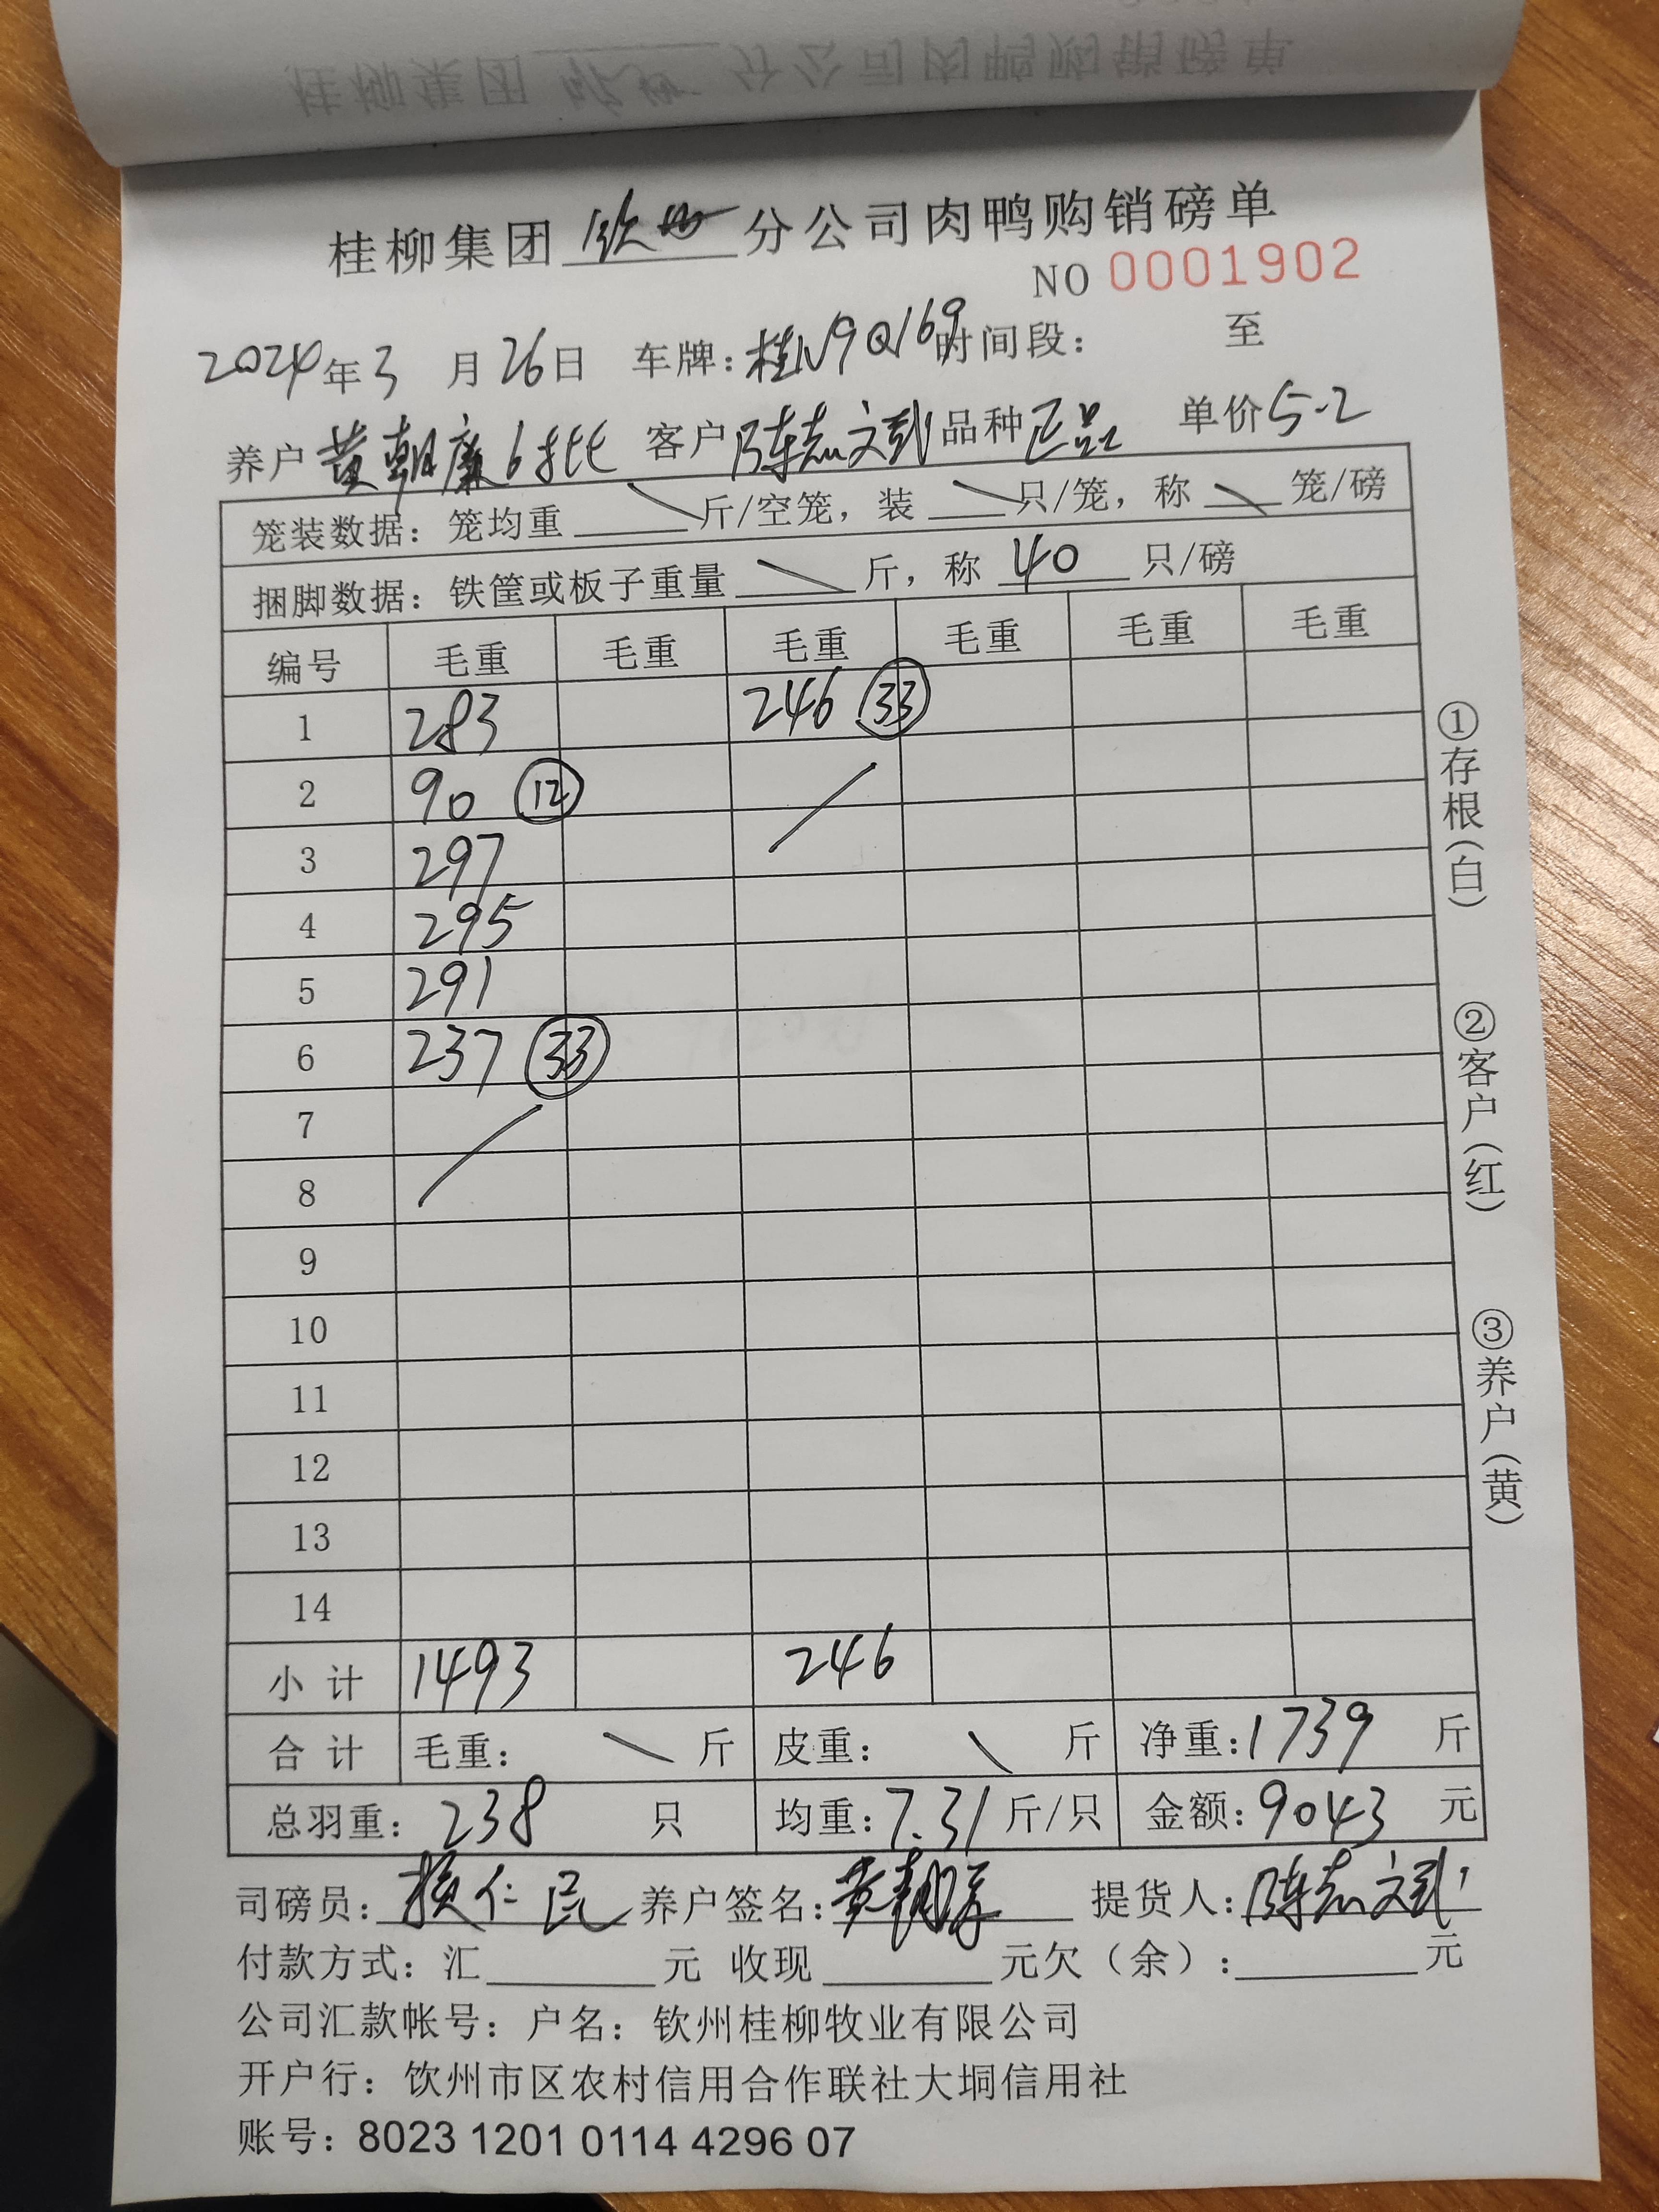 桂柳集团 钦州 分公司肉鸭购销磅单
NO 0001902
2024年3月26日 车牌：桂N9Q169 时间段： 至
养户 黄朝廉6批 客户 陈志文武 品种 正品 单价 5.2
笼装数据：笼均重 \ 斤/空笼，装 \ 只/笼，称 \ 笼/磅
捆脚数据：铁筐或板子重量 \ 斤，称 40 只/磅
编号 毛重 毛重 毛重 毛重 毛重 毛重
1 283 246 ㉝
2 90 ⑫
3 297
4 295
5 291
6 237 ㉝
7
8
9
10
11
12
13
14
小计 1493 246
合计 毛重： \ 斤 皮重： \ 斤 净重：1739 斤
总羽重：238 只 均重：7.31 斤/只 金额：9043 元
司磅员： 仁民 养户签名：黄朝 提货人：陈志文武
付款方式：汇 元 收现 元欠（余）： 元
公司汇款帐号：户名：钦州桂柳牧业有限公司
开户行：钦州市区农村信用合作联社大垌信用社
账号：8023 1201 0114 4296 07
①存根（白）
②客户（红）
③养户（黄）